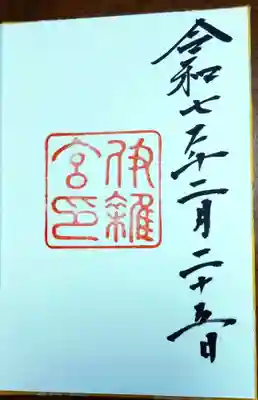 令和七年二月二十五日
伊雜
宮印